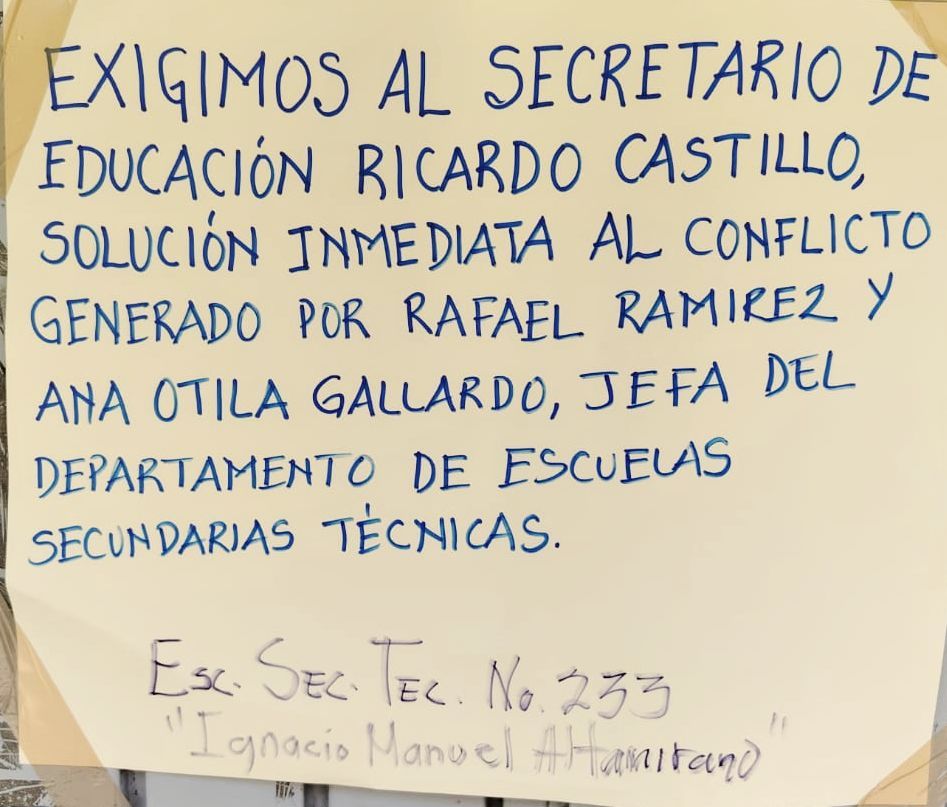 EXIGIMOS AL SECRETARIO DE
EDUCACIÓN RICARDO CASTILLO,
SOLUCIÓN INMEDIATA AL CONFLICTO
GENERADO POR RAFAEL RAMIREZ Y
ANA OTILA GALLARDO, JEFA DEL
DEPARTAMENTO DE ESCUELAS
SECUNDARIAS TÉCNICAS.
Esc. Sec. Tec. No. 233
"Ignacio Manuel Altamirano"